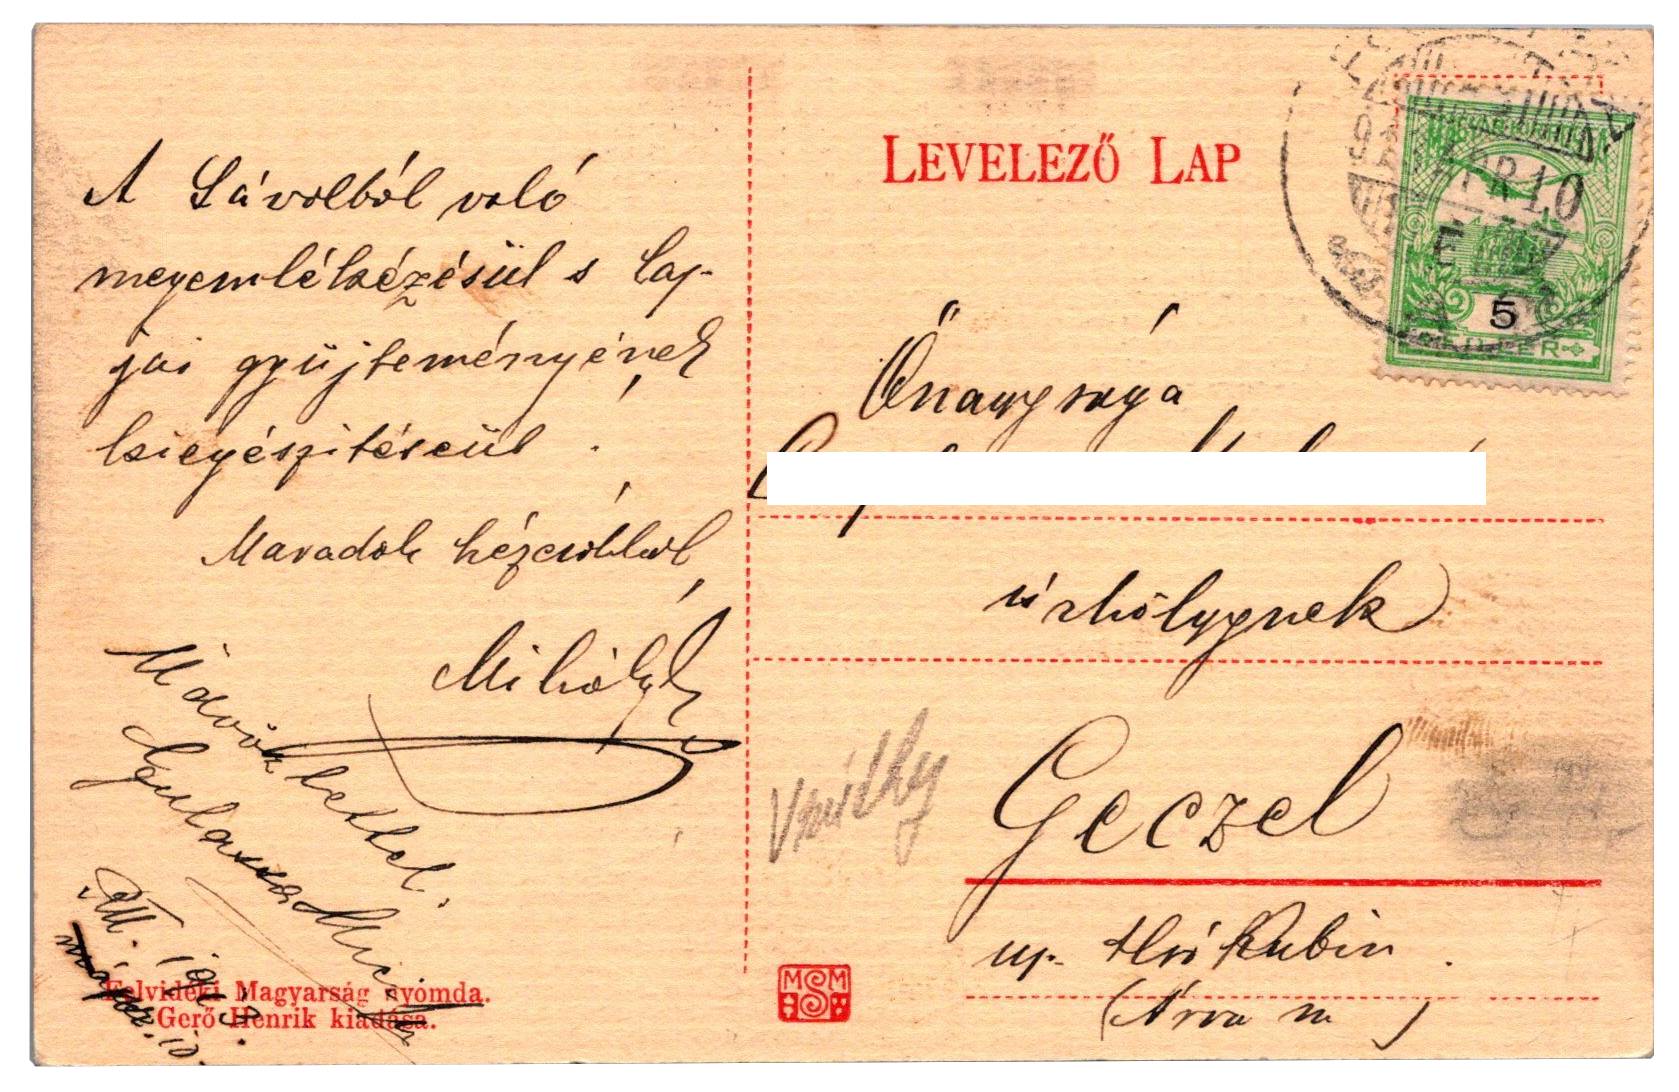 A Távolból való
megemlékezésül s lap-
jai gyüjteményének
kiegészitéseül.
Maradok kézcsókkal,
Mihály
Üdvözlettel
Felvidéki Magyarság nyomda.
Gerő Henrik kiadása.
LEVELEZŐ LAP
5
FILLÉR
Őnagysága
úrhölgynek
Geczel
up. Alsó Kubin
(Árva m)
MSM